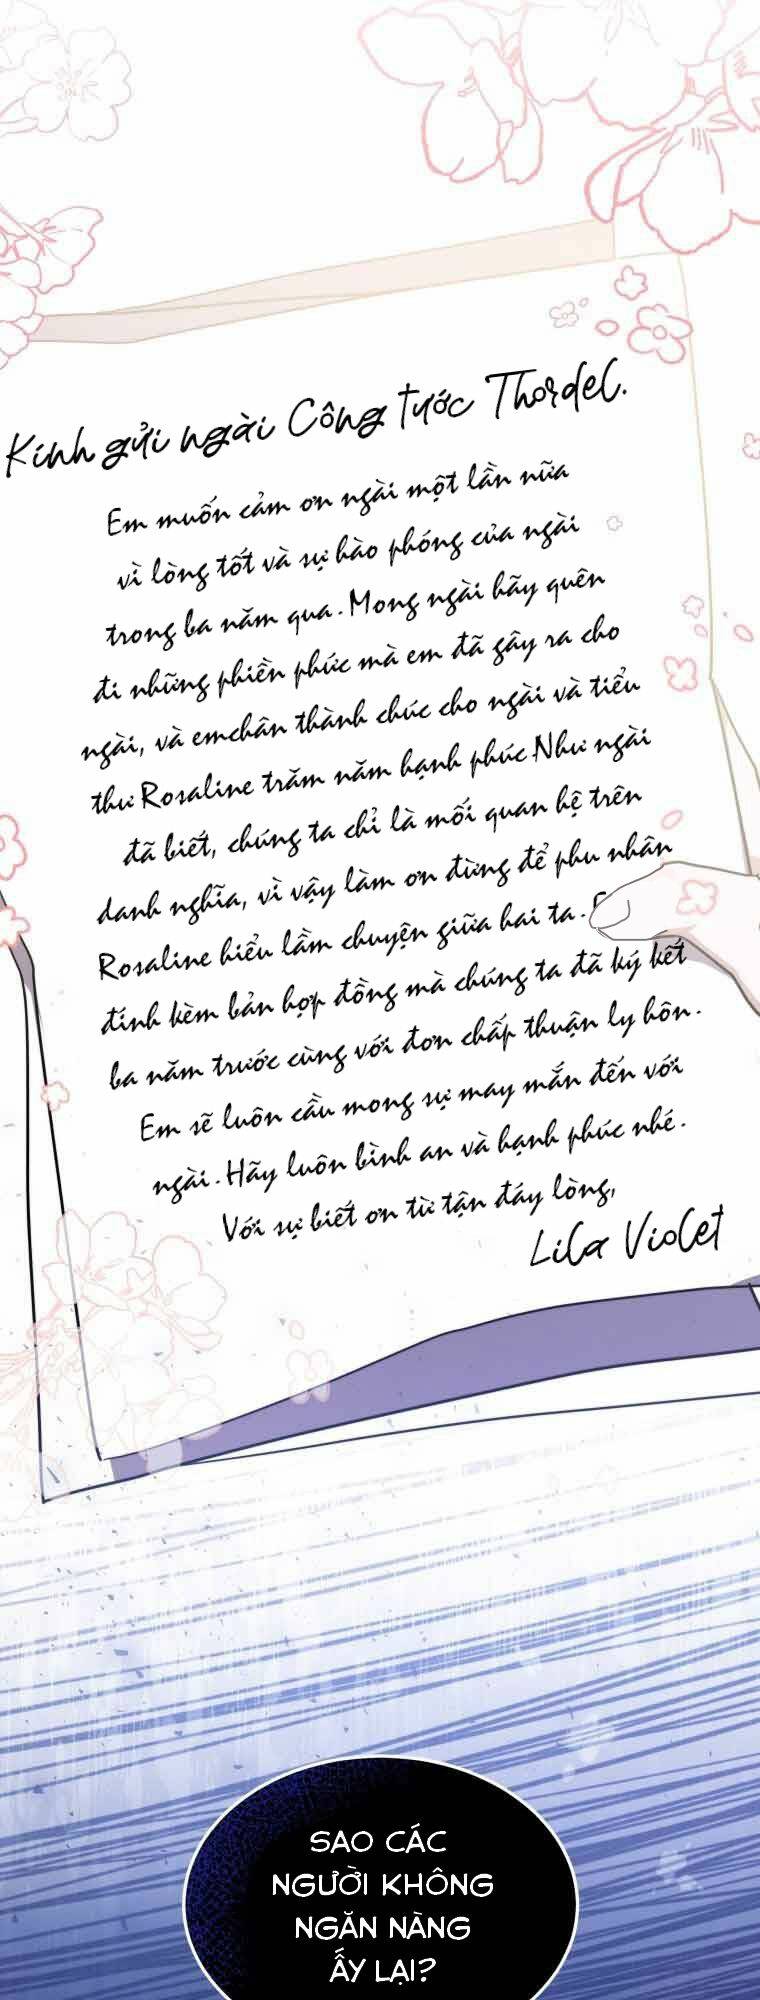 Kính gửi ngài Công tước Thordel.
Em muốn cảm ơn ngài một lần nữa
vì lòng tốt và sự hào phóng của ngài
trong ba năm qua. Mong ngài hãy quên
đi những phiền phức mà em đã gây ra cho
ngài, và emchân thành chúc cho ngài và tiểu
thư Rosaline trăm năm hạnh phúc.Như ngài
đã biết, chúng ta chỉ là mối quan hệ trên
danh nghĩa, vì vậy làm ơn đừng để phu nhân
Rosaline hiểu lầm chuyện giữa hai ta.
đính kèm bản hợp đồng mà chúng ta đã ký kết
ba năm trước cùng với đơn chấp thuận ly hôn.
Em sẽ luôn cầu mong sự may mắn đến với
ngài. Hãy luôn bình an và hạnh phúc nhé.
Với sự biết ơn từ tận đáy lòng,
Lila Violet
SAO CÁC
NGƯỜI KHÔNG
NGĂN NÀNG
ẤY LẠI?